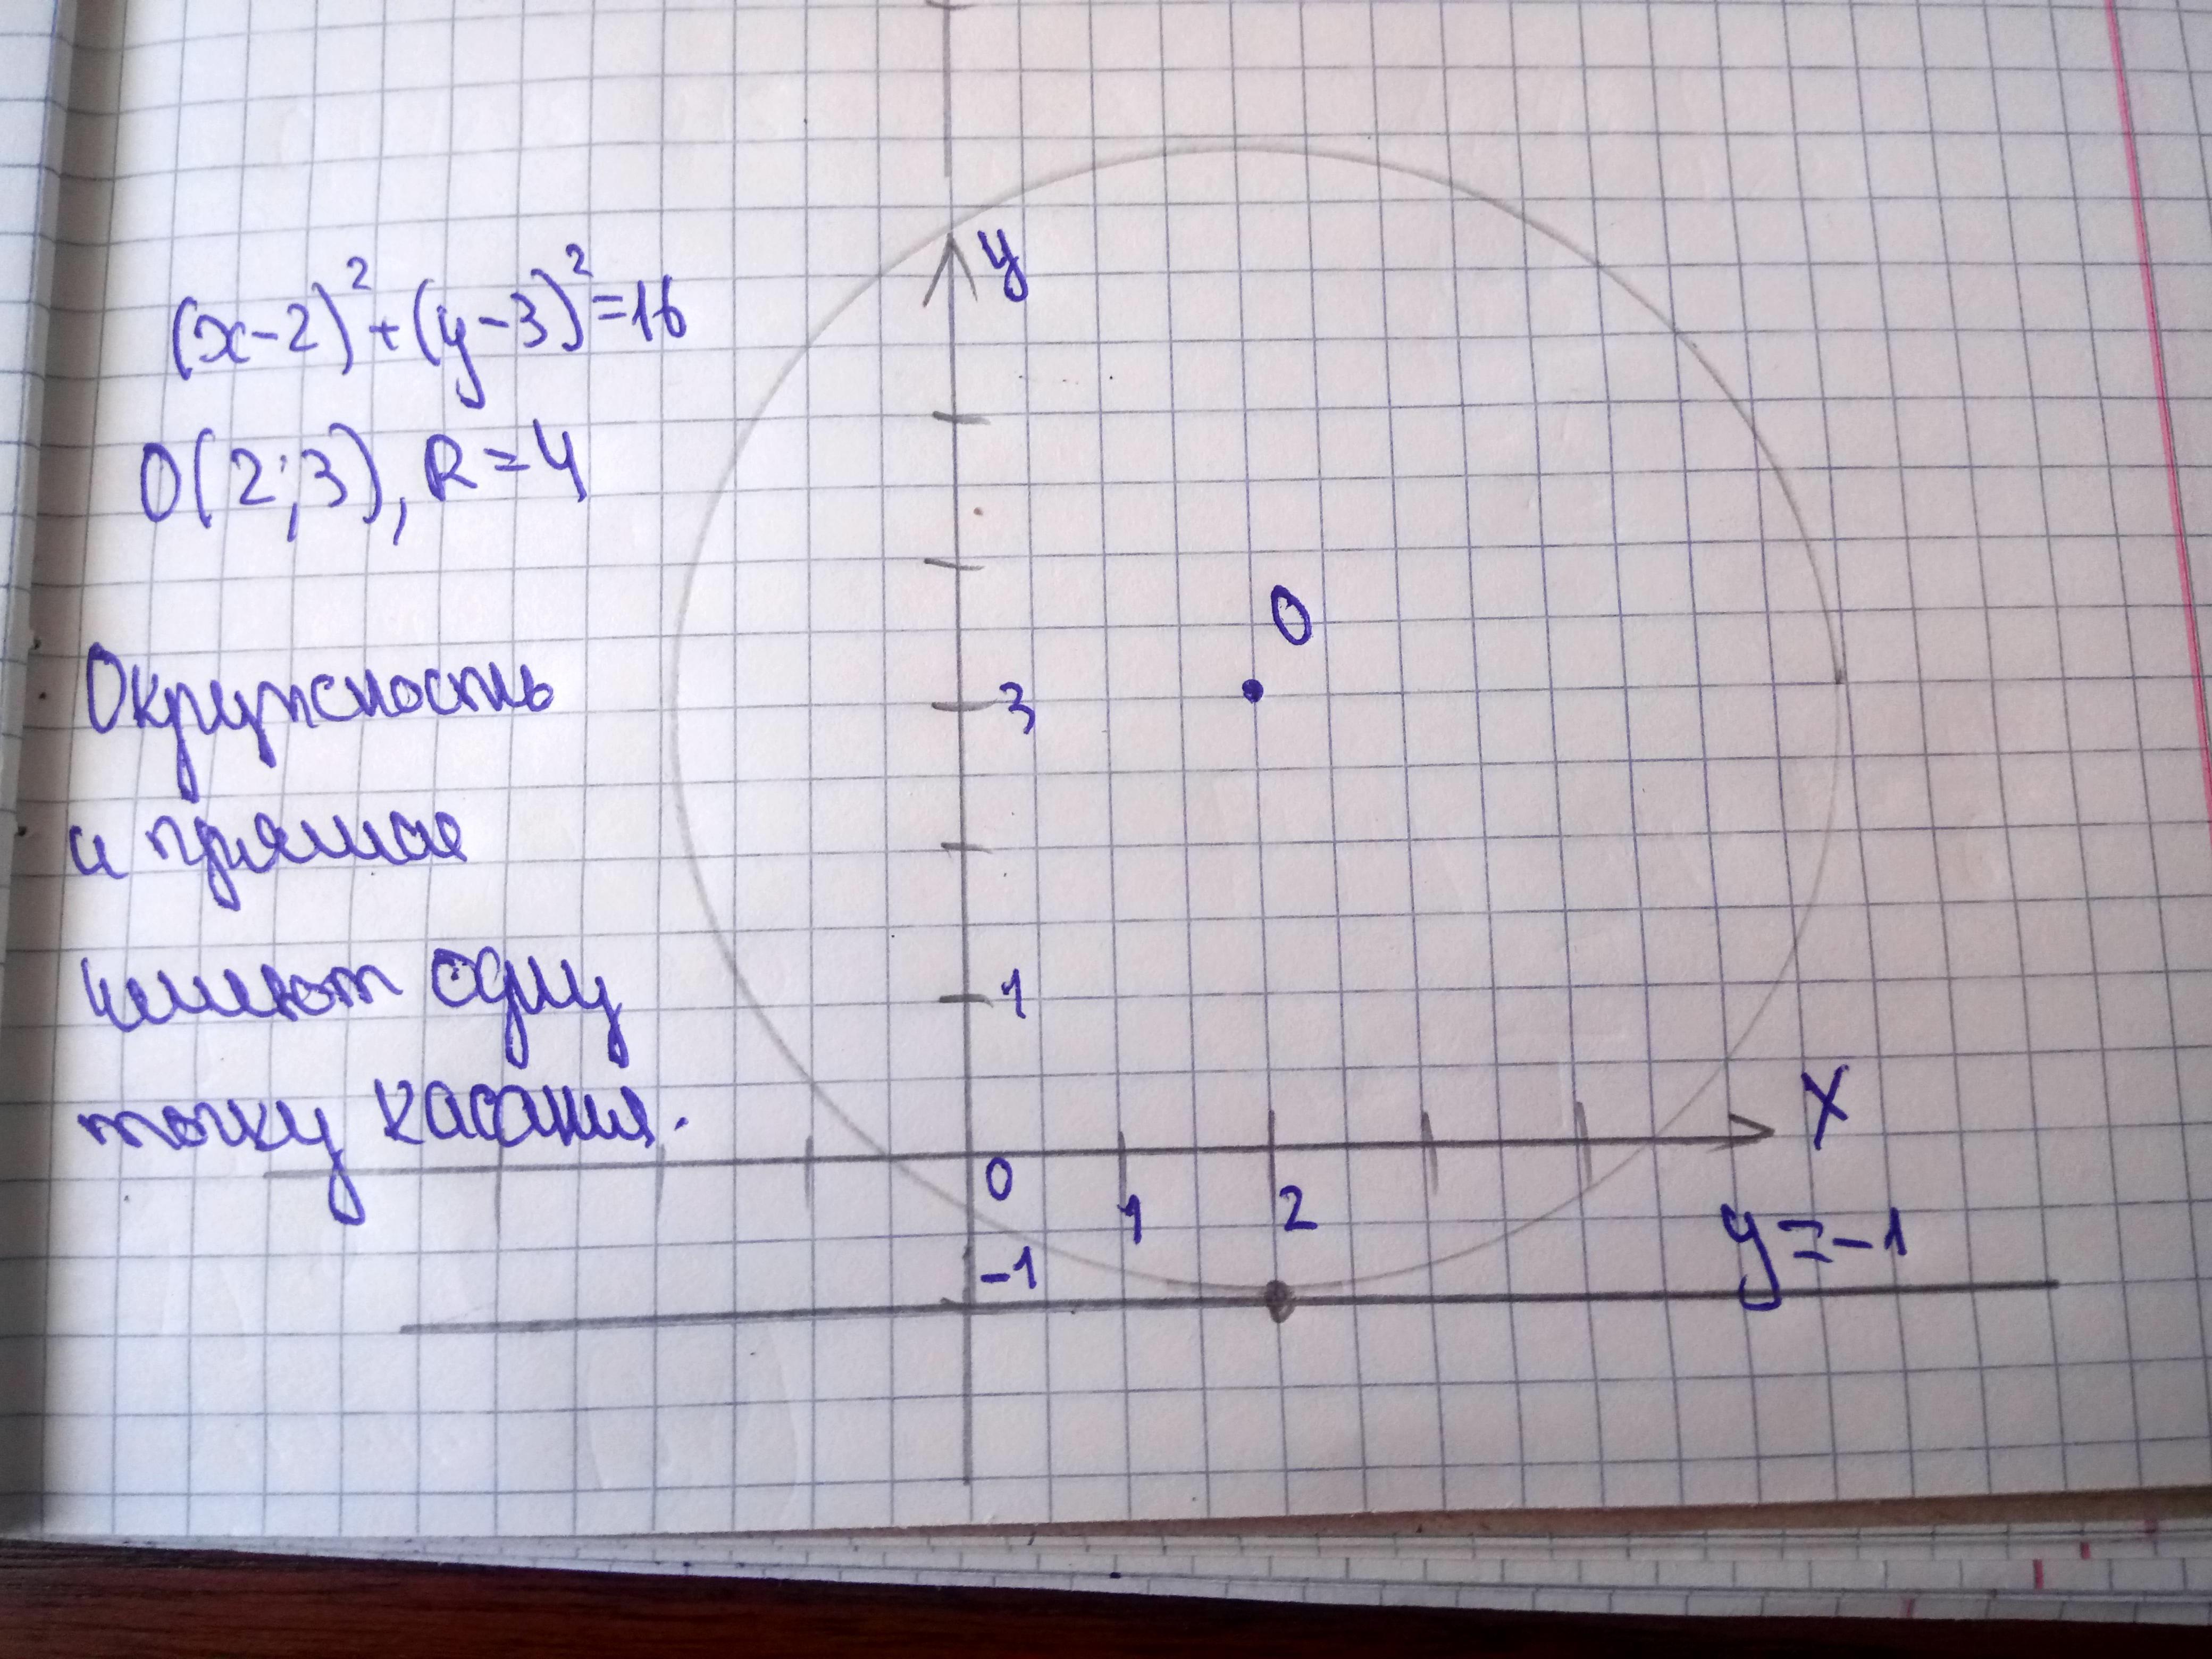 (x-2)²+(y-3)²=16
O(2;3), R=4
Окружность
и прямая
имеют одну
точку касания.
y
O
3
1
X
0
1
2
y=-1
-1